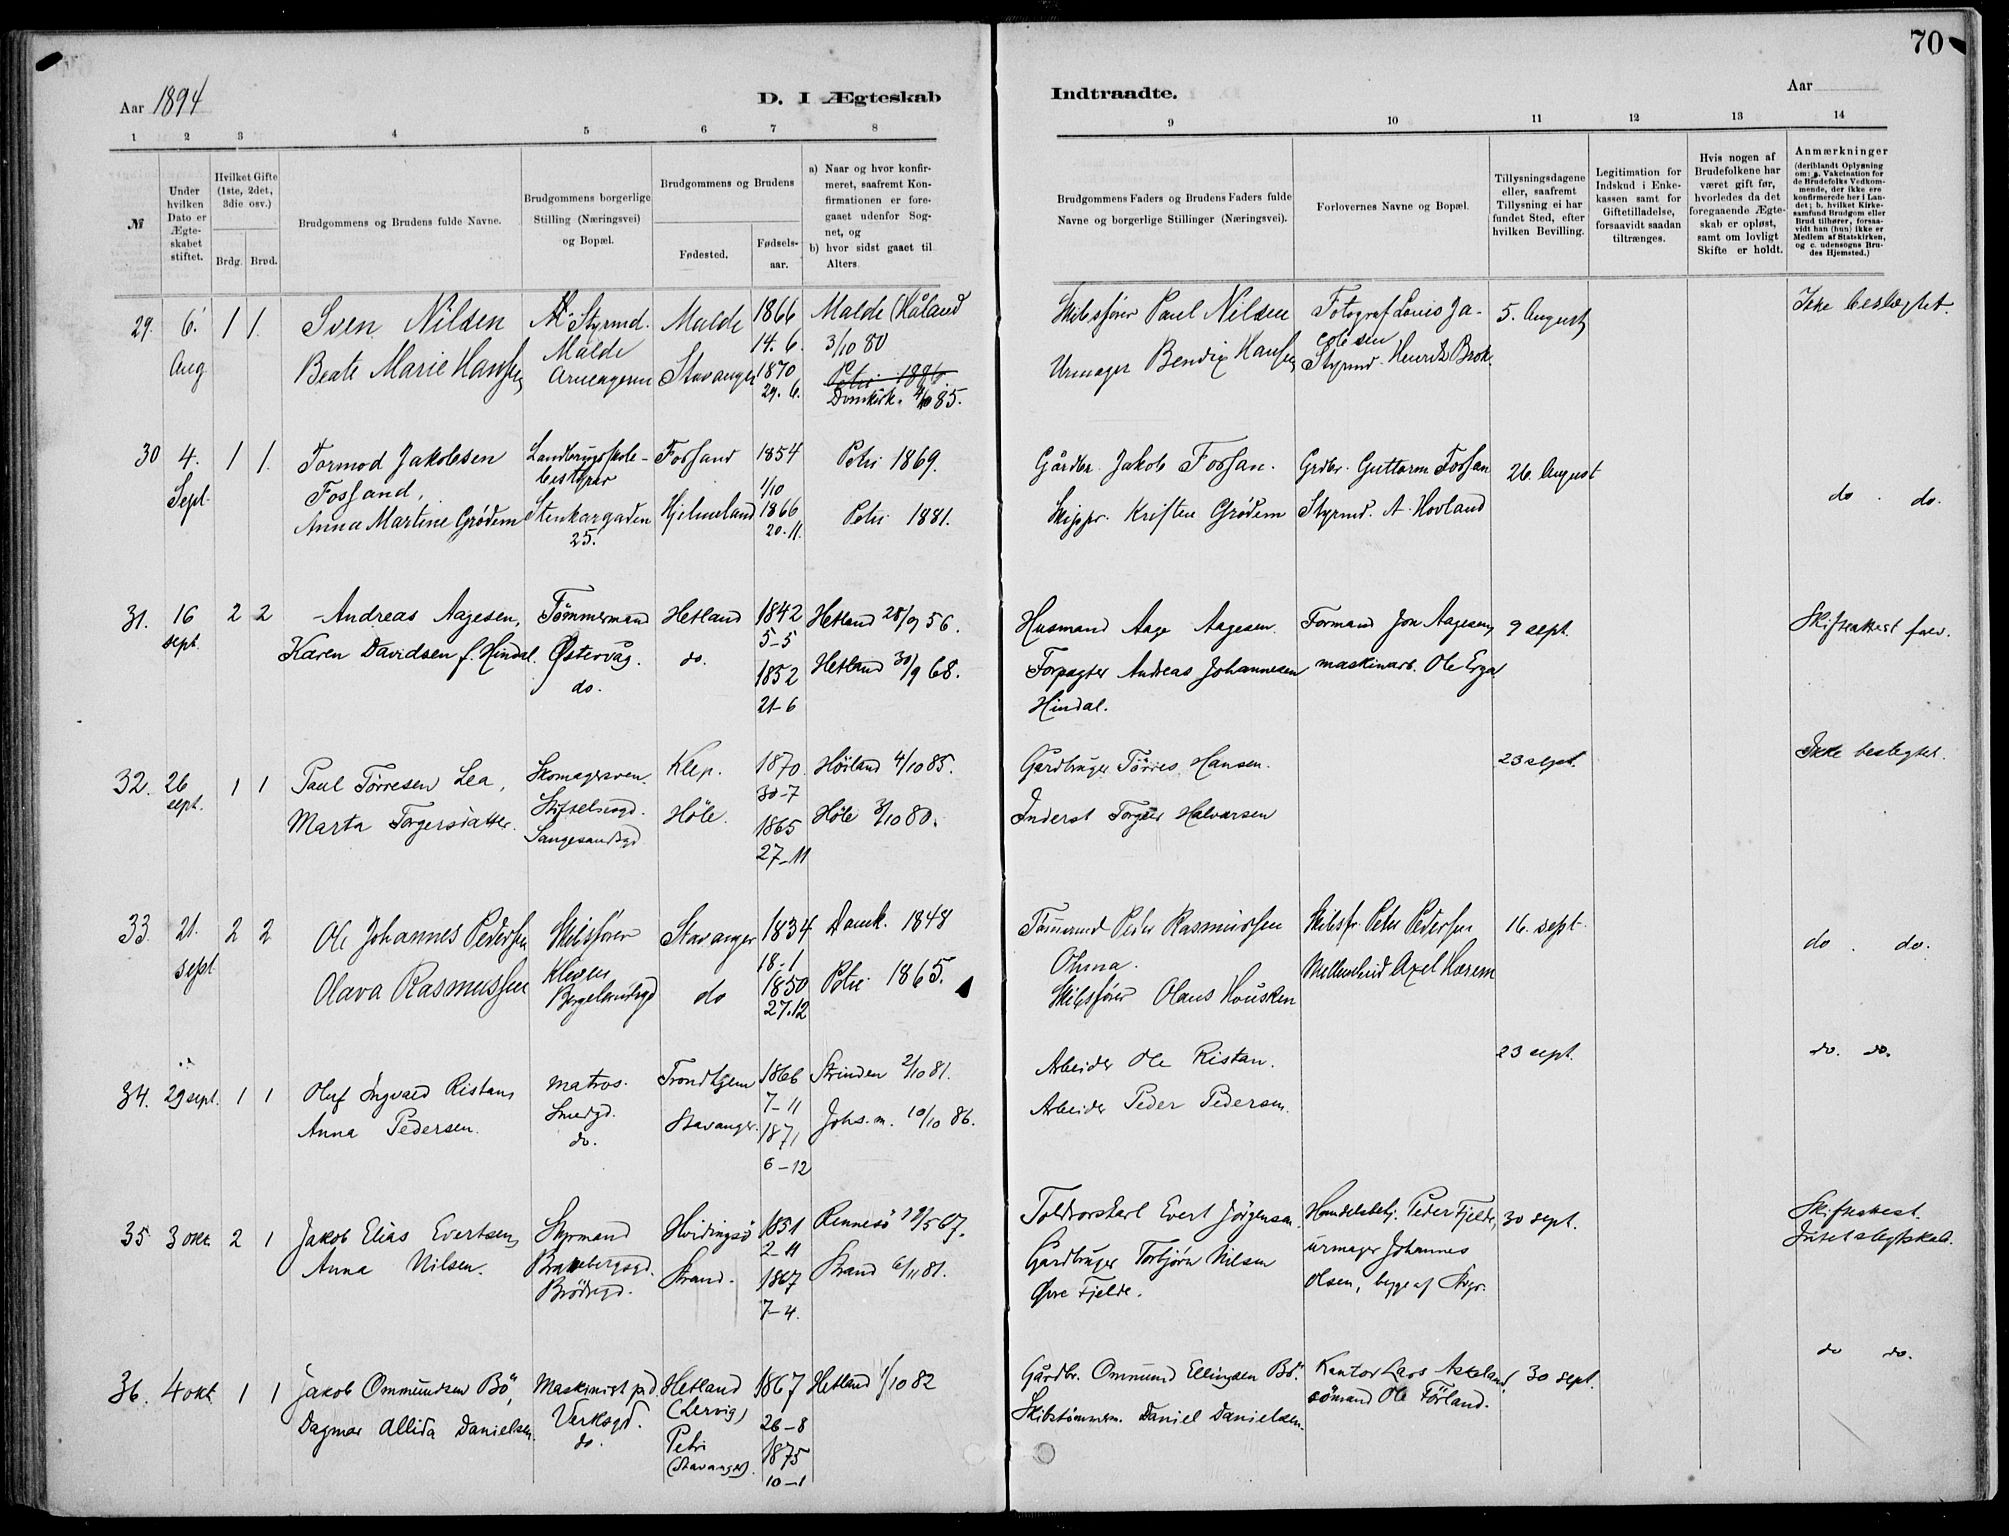 70
Aar 1894
D. I Ægteskab
Indtraadte.
Aar
1 2 3 4 5 6 7 8
9 10 11 12 13 14
№
Under hvilken Dato er Ægteskabet stiftet.
Hvilket Gifte (1ste, 2det, 3die osv.)
Brdg. Brud.
Brudgommens og Brudens fulde Navne.
Brudgommens borgerlige Stilling (Næringsvei) og Bopæl.
Brudgommens og Brudens
Fødested.
Fødselsaar.
a) Naar og hvor konfirmeret, saafremt Konfirmationen er foregaaet udenfor Sognet, og
b) hvor sidst gaaet til Alters.
Brudgommens Faders og Brudens Faders fulde Navne og borgerlige Stillinger (Næringsvei).
Forlovernes Navne og Bopæl.
Tillysningsdagene eller, saafremt Tillysning ei har fundet Sted, efter hvilken Bevilling.
Legitimation for Indskud i Enkekassen samt for Giftetilladelse, forsaavidt saadan tiltrænges.
Hvis nogen af Brudefolkene har været gift før, hvorledes da det foregaaende Ægteskab er opløst, samt om lovligt Skifte er holdt.
Anmærkninger
(deriblandt Oplysning om: a. Vakcination for de Brudefolks Vedkommende, der ikke ere konfirmerede her i Landet; b. hvilket Kirkesamfund Brudgom eller Brud tilhører, forsaavidt han (hun) ikke er Medlem af Statskirken, og c. udensogns Brudes Hjemsted.)
29. 6. Aug 1 1.
Sven Nilsen
Beate Marie Hansen
Styrmd.
Malde
Malde
Stavanger
1866
14. 6.
1870
29. 6.
Malde (Håland
3/10 80
Petri
Domkirk. 4/10 85.
Skibsfører Paul Nilsen
Urmager Bendix Hansen
Fotograf Louis Jacobsen
Styrmd. Henrik Brok.
5. August
Ikke beslægtet.
30 4. Sept. 1 1.
Tormod Jakobsen
Fossand,
Anna Martine Grødem
Landbrugsskolebestyrer
Stenkargaden
25.
Fossand
Hjelmeland
1854
1/10
1866
20.11.
Petri 1869.
Petri 1881.
Gårdbr. Jakob Fossan.
Skippr. Kristen Grødem
Grdbr. Guttorm Fossan
Styrmd. A. Hovland
26. August
do. do.
31. 16 sept. 2 2
Andreas Aagesen,
Karen Davidsen f. Hindal.
Tømmermand
Østervåg.
do.
Hetland
do.
1842
5-5
1852
21-6
Hetland 28/9 56.
Hetland 30/9 68.
Husmand Aage Aagesen.
Forpagter Andreas Johannesen
Hindal.
Formand Jon Aagesen,
maskinarb. Ole Erga
9 sept.
Skifteattest frev.
32. 26 sept. 1 1
Paul Tørresen Lea,
Marta Torgersdatter.
Skomagersven.
Stiftelsesgd.
Langesandsgd
Klep.
Høle.
1870.
30-7
1865
27-11
Høiland 4/10 85.
Høle 3/10 80.
Gårdbruger Tørres Hansen.
Inderst Torger Halvorsen
23 sept.
Ikke beslegtet.
33. 21. sept 2 2
Ole Johannes Pedersen
Olava Rasmussen
Skibsfører
Kleven
Bergelandsgd
Stavanger
do
1834
18-1
1850
27.12
Domk. 1848
Petri 1865.
Tømermd Peder Rasmussen
Ohma.
Skibsfører Olaus Housken
Skibsfr. Peter Pedersen
Axel Harem
16. sept.
do. do.
34. 29 sept. 1 1
Oluf Ingvald Ristan,
Anna Pedersen.
matros.
Smedgd.
do.
Trondhjem
Stavanger.
1866
7-11
1871
6-12
Strinden 2/10 81.
Johs. m. 10/10 86.
Arbeider Ole Ristan.
Arbeider Peder Pedersen.
23 sept.
do. do.
35 3 okt 2 1
Jakob Elias Evertsen,
Anna Nilsen.
Styrmand
Brødregd.
Hvidingsø
Strand.
1851
2-11
1867
7-4.
Rennesö 19/5 67.
Strand 6/11 81.
Toldrorskarl Evert Jörgensen.
Gårdbruger Torbjörn Nilsen
Øvre Fjelde.
Handelsbetj. Peder Fjelde,
urmager Johannes
Olsen, begge af Stvgr.
30 sept.
Skifteattest.
Intet slegtskab.
36. 4 okt. 1 1
Jakob Ommundsen Bö,
Dagmar Allida Danielsen.
Maskinist p. d.
Verksgd.
do.
Hetland
(Lervig)
Petri
(Stavanger).
1867
26-8
1875
10-1
Hetland 1/10 82
Gårdbr. Ommund Ellingsen Bö.
Skibstømmerm. Daniel Danielsen.
Kantor Lars Askeland,
sömand Ole Förland.
30 sept.
do do.